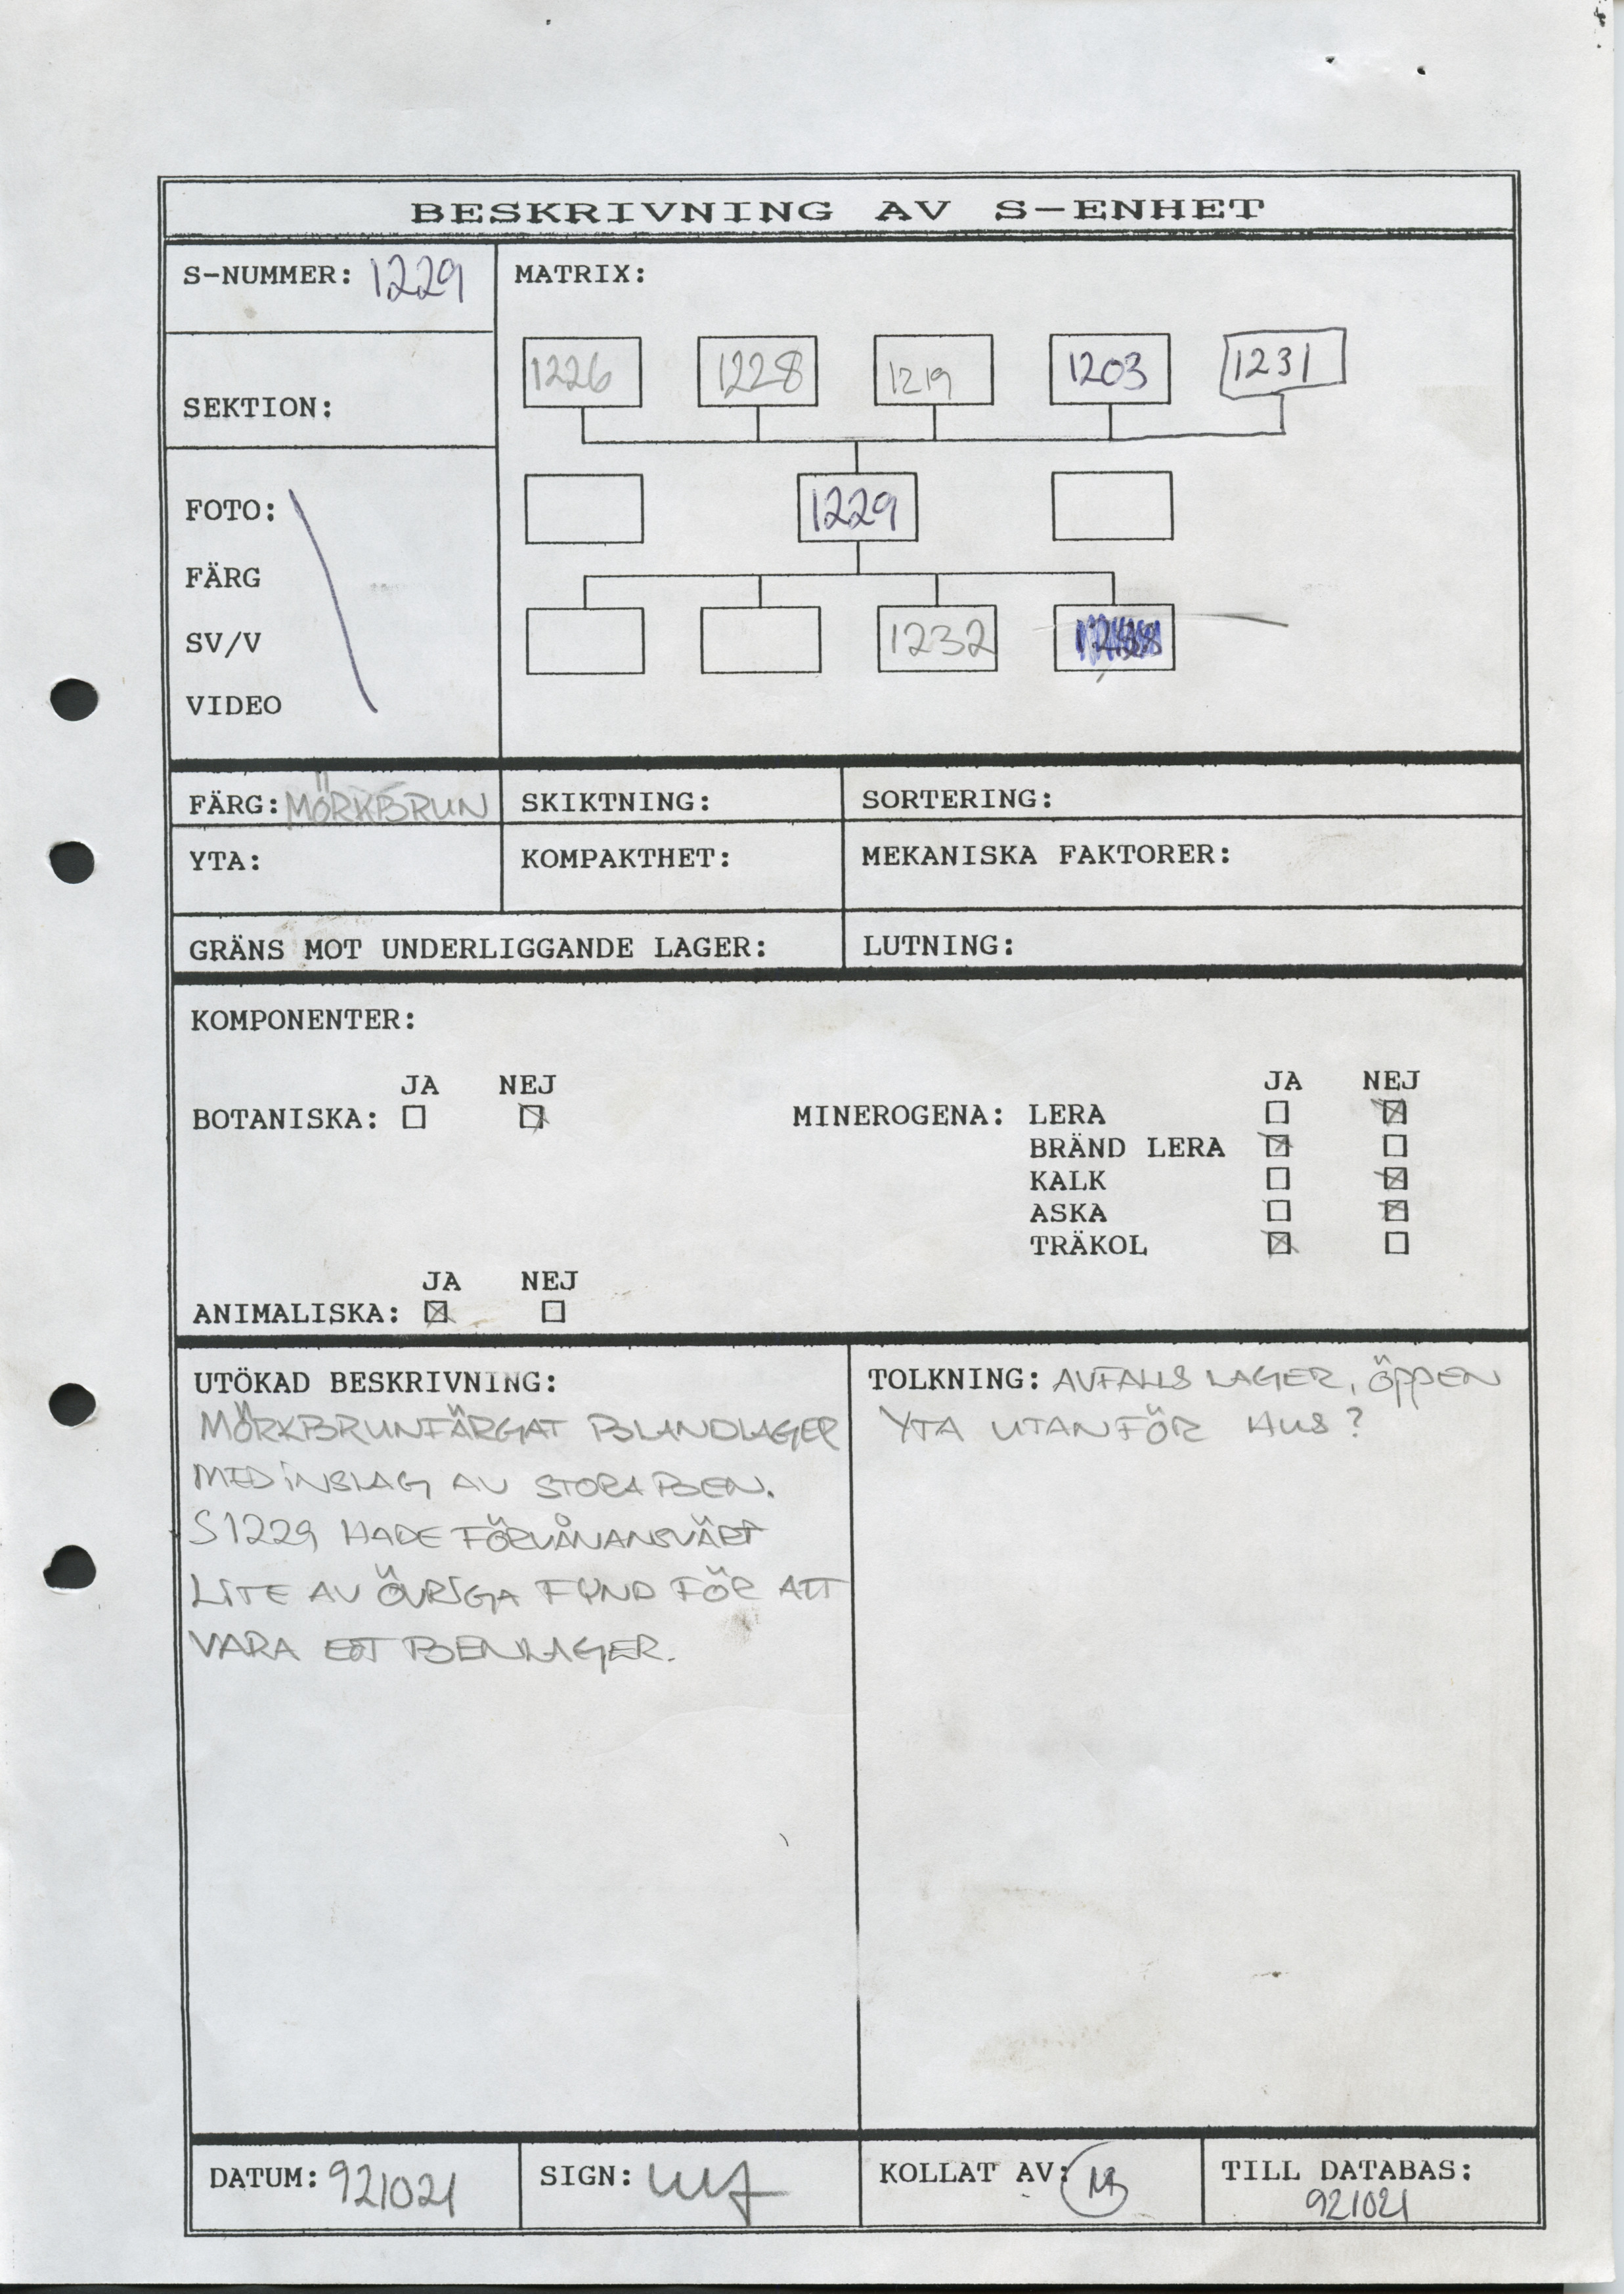 BESKRIVNING AV S-ENHET
S-NUMMER: 1229
MATRIX:
1226 1228 1219 1203 1231
SEKTION:
1229
FOTO:
FÄRG
SV/V
VIDEO
1232
FÄRG: MÖRKBRUN
SKIKTNING:
SORTERING:
YTA:
KOMPAKTHET:
MEKANISKA FAKTORER:
GRÄNS MOT UNDERLIGGANDE LAGER:
LUTNING:
KOMPONENTER:
JA NEJ
BOTANISKA:
JA NEJ
MINEROGENA: LERA
BRÄND LERA
KALK
ASKA
TRÄKOL
JA NEJ
ANIMALISKA:
UTÖKAD BESKRIVNING:
MÖRKBRUNFÄRGAT BLANDLAGER
MED INSLAG AV STORA BEN.
S1229 HADE FÖRVÅNANSVÄRT
LITE AV ÖVRIGA FYND FÖR ATT
VARA ETT BENLAGER.
TOLKNING: AVFALLS LAGER, ÖPPEN
YTA UTANFÖR HUS?
DATUM: 921021
SIGN:
KOLLAT AV:
TILL DATABAS:
921021